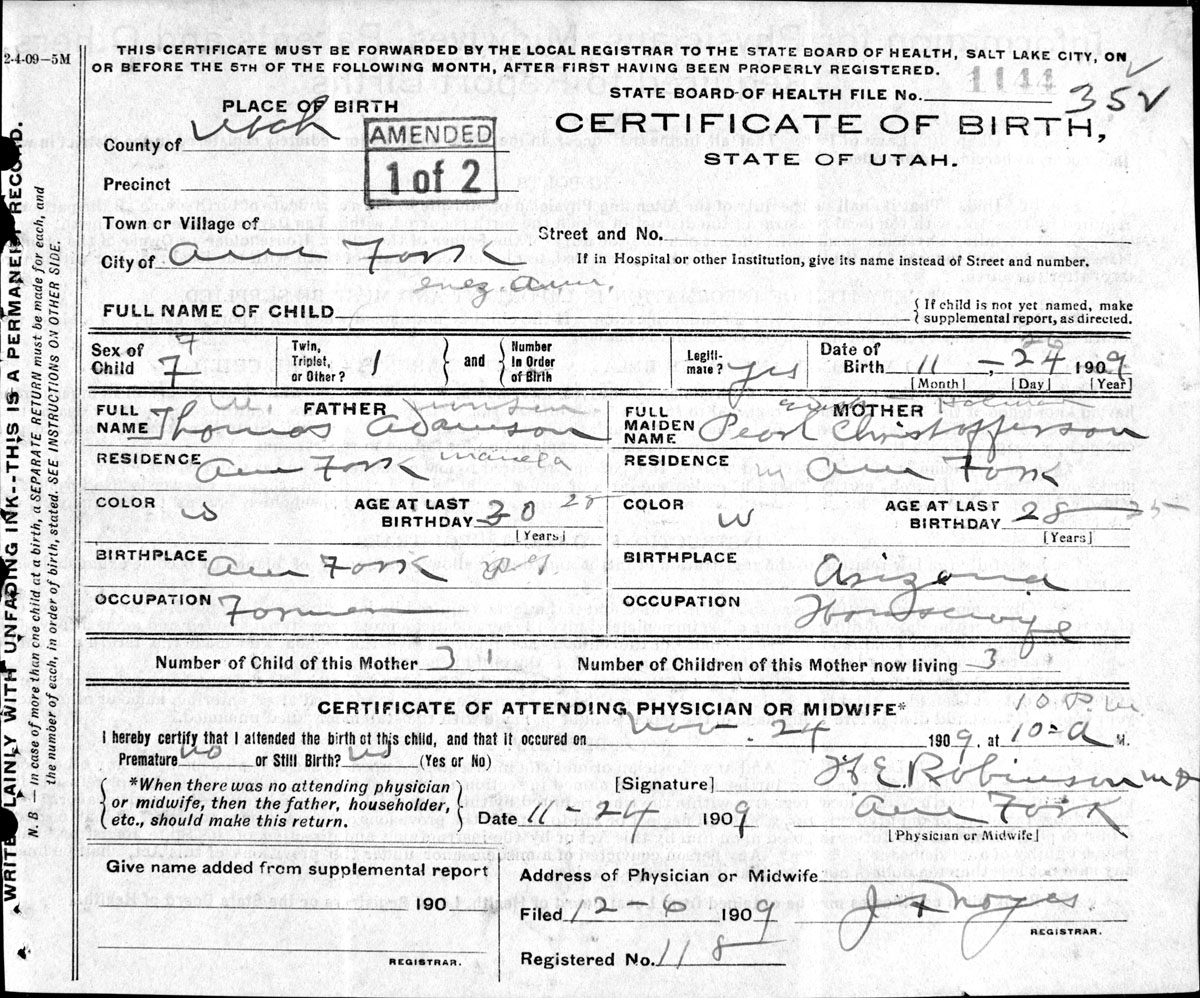 2-4-09-5M
THIS CERTIFICATE MUST BE FORWARDED BY THE LOCAL REGISTRAR TO THE STATE BOARD OF HEALTH, SALT LAKE CITY, ON
OR BEFORE THE 5TH OF THE FOLLOWING MONTH, AFTER FIRST HAVING BEEN PROPERLY REGISTERED.
1144
STATE BOARD OF HEALTH FILE No. 352
PLACE OF BIRTH
CERTIFICATE OF BIRTH,
STATE OF UTAH.
County of Utah
AMENDED
1 of 2
Precinct
Town or Village of
Street and No.
City of Am Fork
If in Hospital or other Institution, give its name instead of Street and number.
FULL NAME OF CHILD
{If child is not yet named, make
supplemental report, as directed.
Sex of Child F
Twin, Triplet, or Other? 1
and
Number in Order of Birth
Legitimate? yes
Date of Birth 11-24 1909
[Month] [Day] [Year]
FULL NAME FATHER Thomas Adamson
FULL MAIDEN NAME MOTHER Pearl Christofferson
RESIDENCE Am Fork
RESIDENCE Am Fork
COLOR W
AGE AT LAST BIRTHDAY 30 25
[Years]
COLOR W
AGE AT LAST BIRTHDAY 28 25
[Years]
BIRTHPLACE Am Fork
BIRTHPLACE Arizona
OCCUPATION Farmer
OCCUPATION Housewife
Number of Child of this Mother 3 1
Number of Children of this Mother now living 3
CERTIFICATE OF ATTENDING PHYSICIAN OR MIDWIFE*
10 P.M
I hereby certify that I attended the birth of this child, and that it occured on Nov. 24 1909, at 10-a M.
Premature no or Still Birth? no (Yes or No)
*When there was no attending physician
or midwife, then the father, householder,
etc., should make this return.
[Signature] F E. Robinson MD
Date 11 29 1909
Am Fork
[Physician or Midwife]
Give name added from supplemental report
190
REGISTRAR.
Address of Physician or Midwife
Filed 12 6 1909
J F Noyes
REGISTRAR.
Registered No. 118
WRITE PLAINLY WITH UNFADING INK--THIS IS A PERMANENT RECORD.
N. B.—In case of more than one child at a birth, a SEPARATE RETURN must be made for each, and
the number of each, in order of birth, stated. SEE INSTRUCTIONS ON OTHER SIDE.